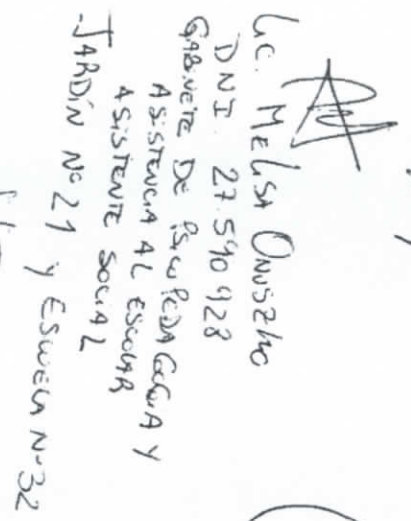 Lic. MELISA ONUSZKO
DNI 27.590.928
GABINETE DE PSICOPEDAGOGIA Y
ASISTENCIA AL ESCOLAR
ASISTENTE SOCIAL
-JARDÍN Nº 21 Y ESCUELA Nº 32